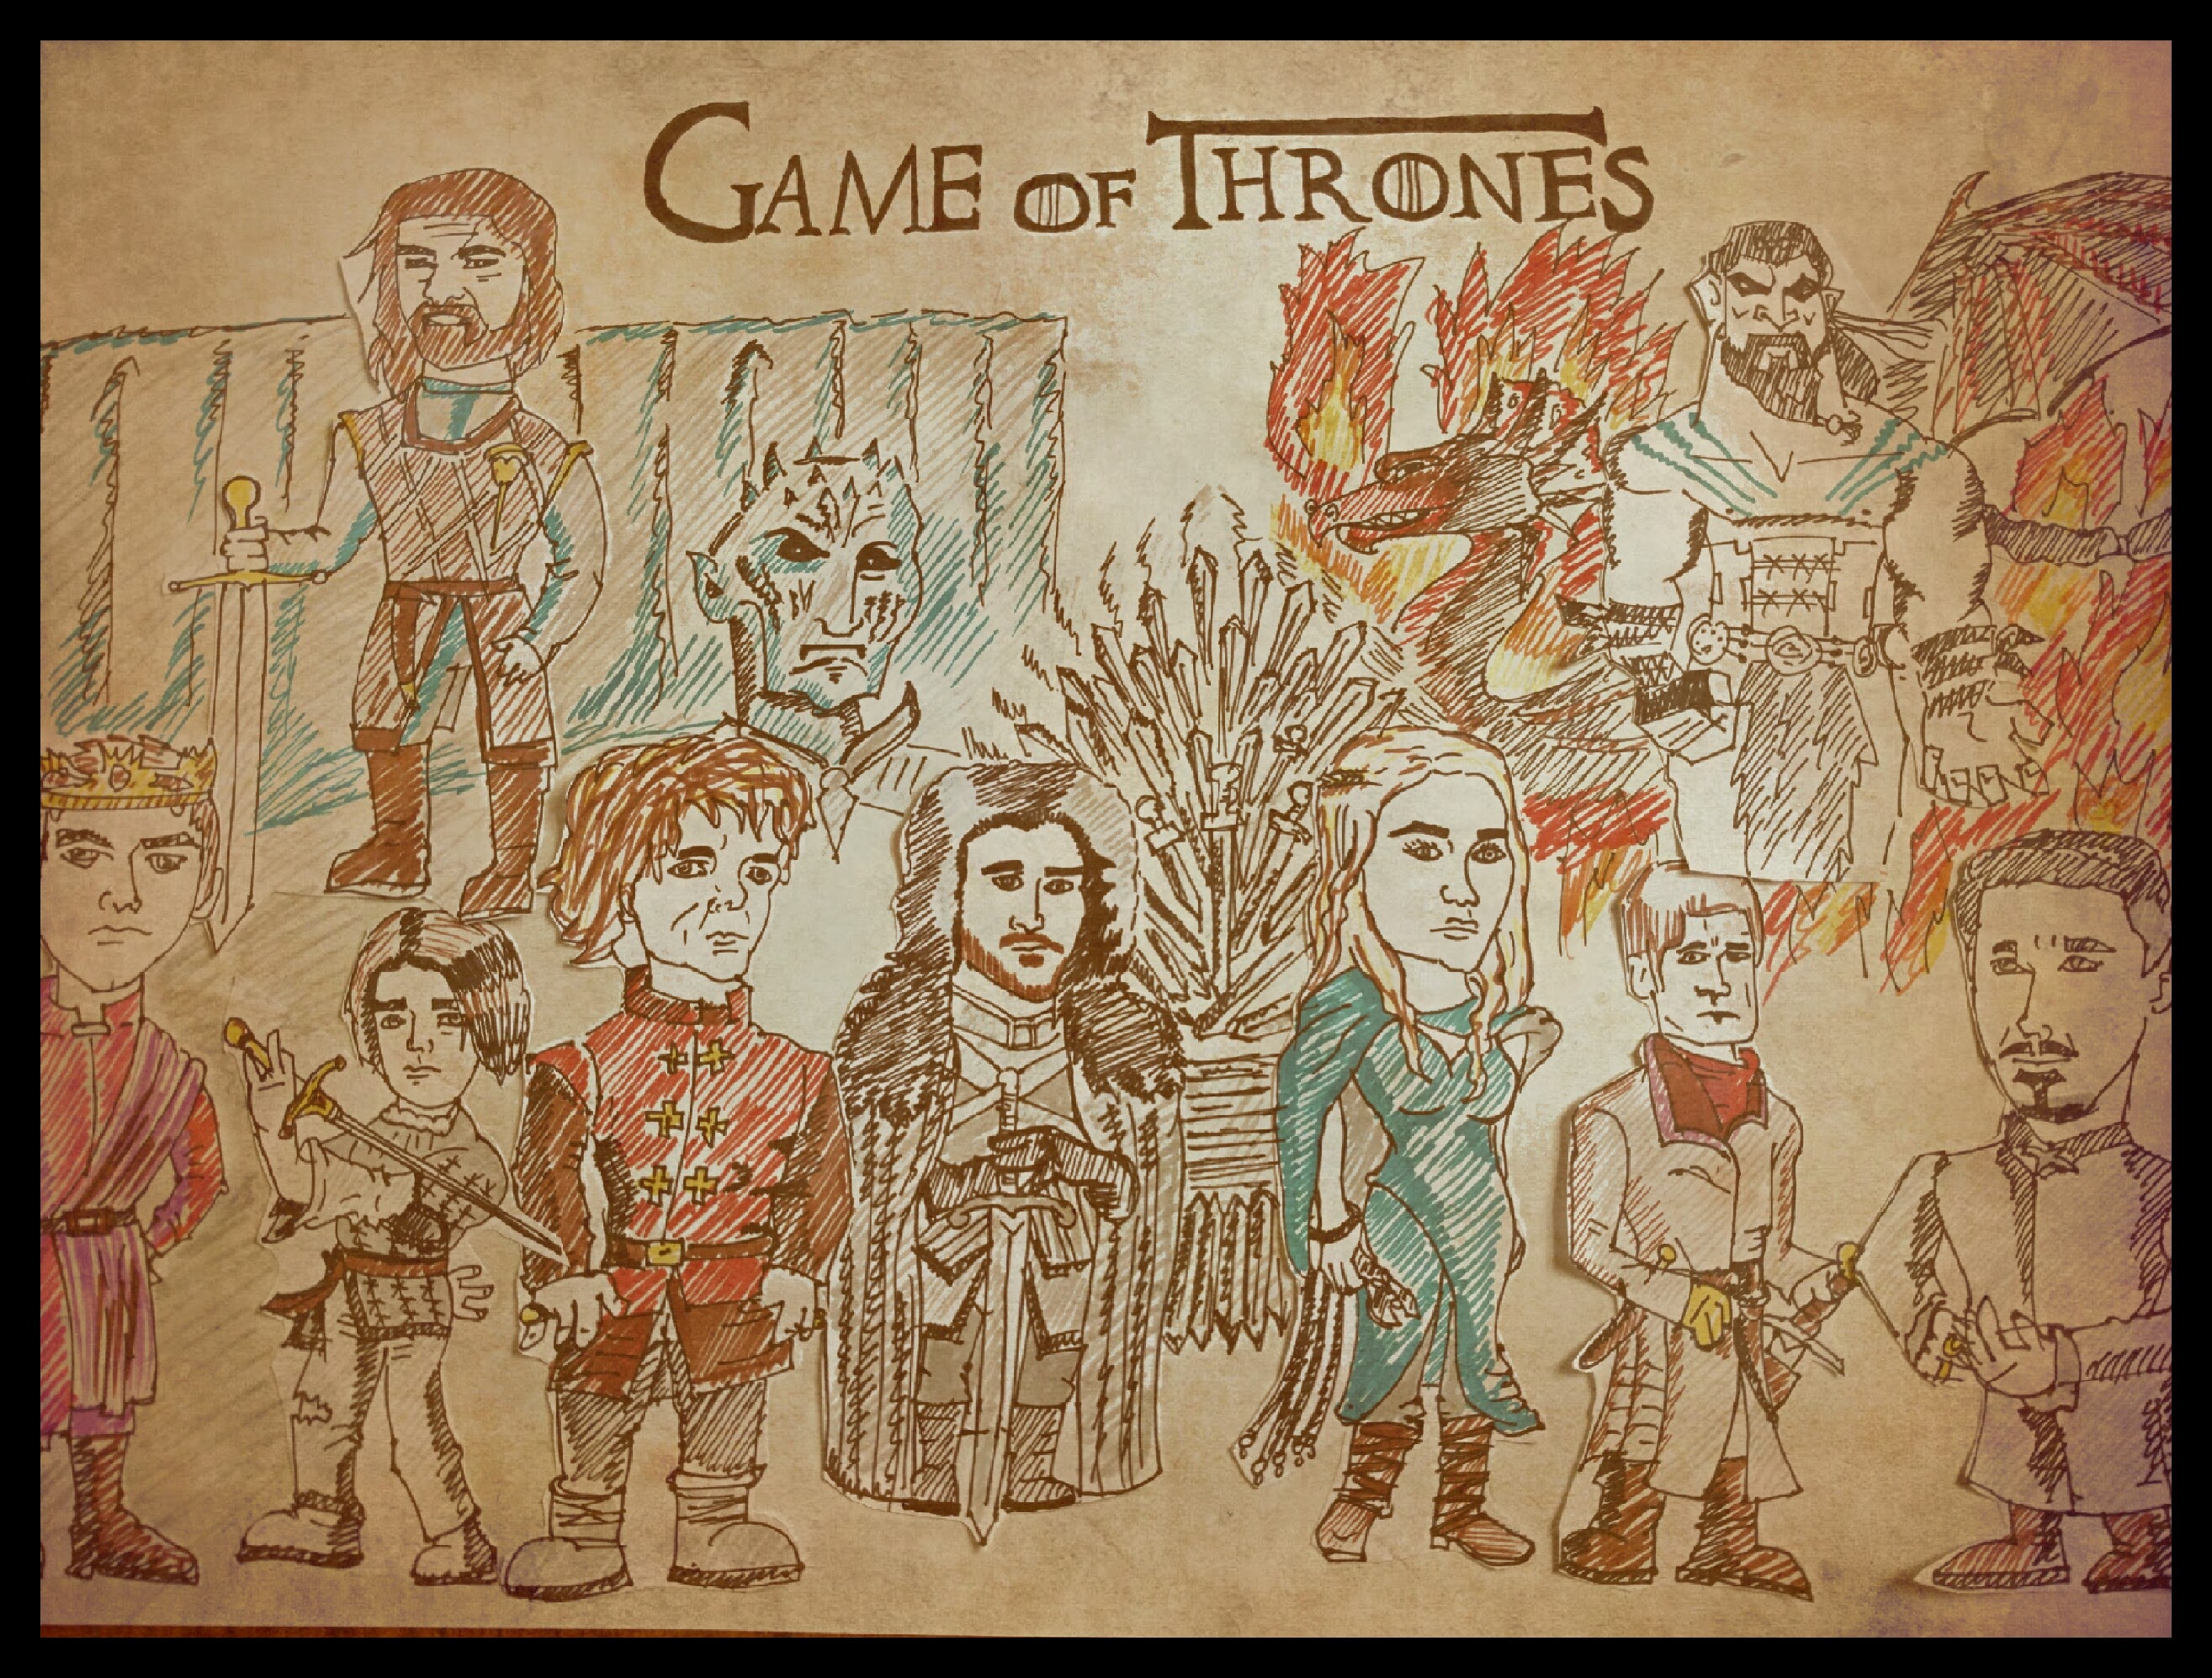 GAME OF THRONES